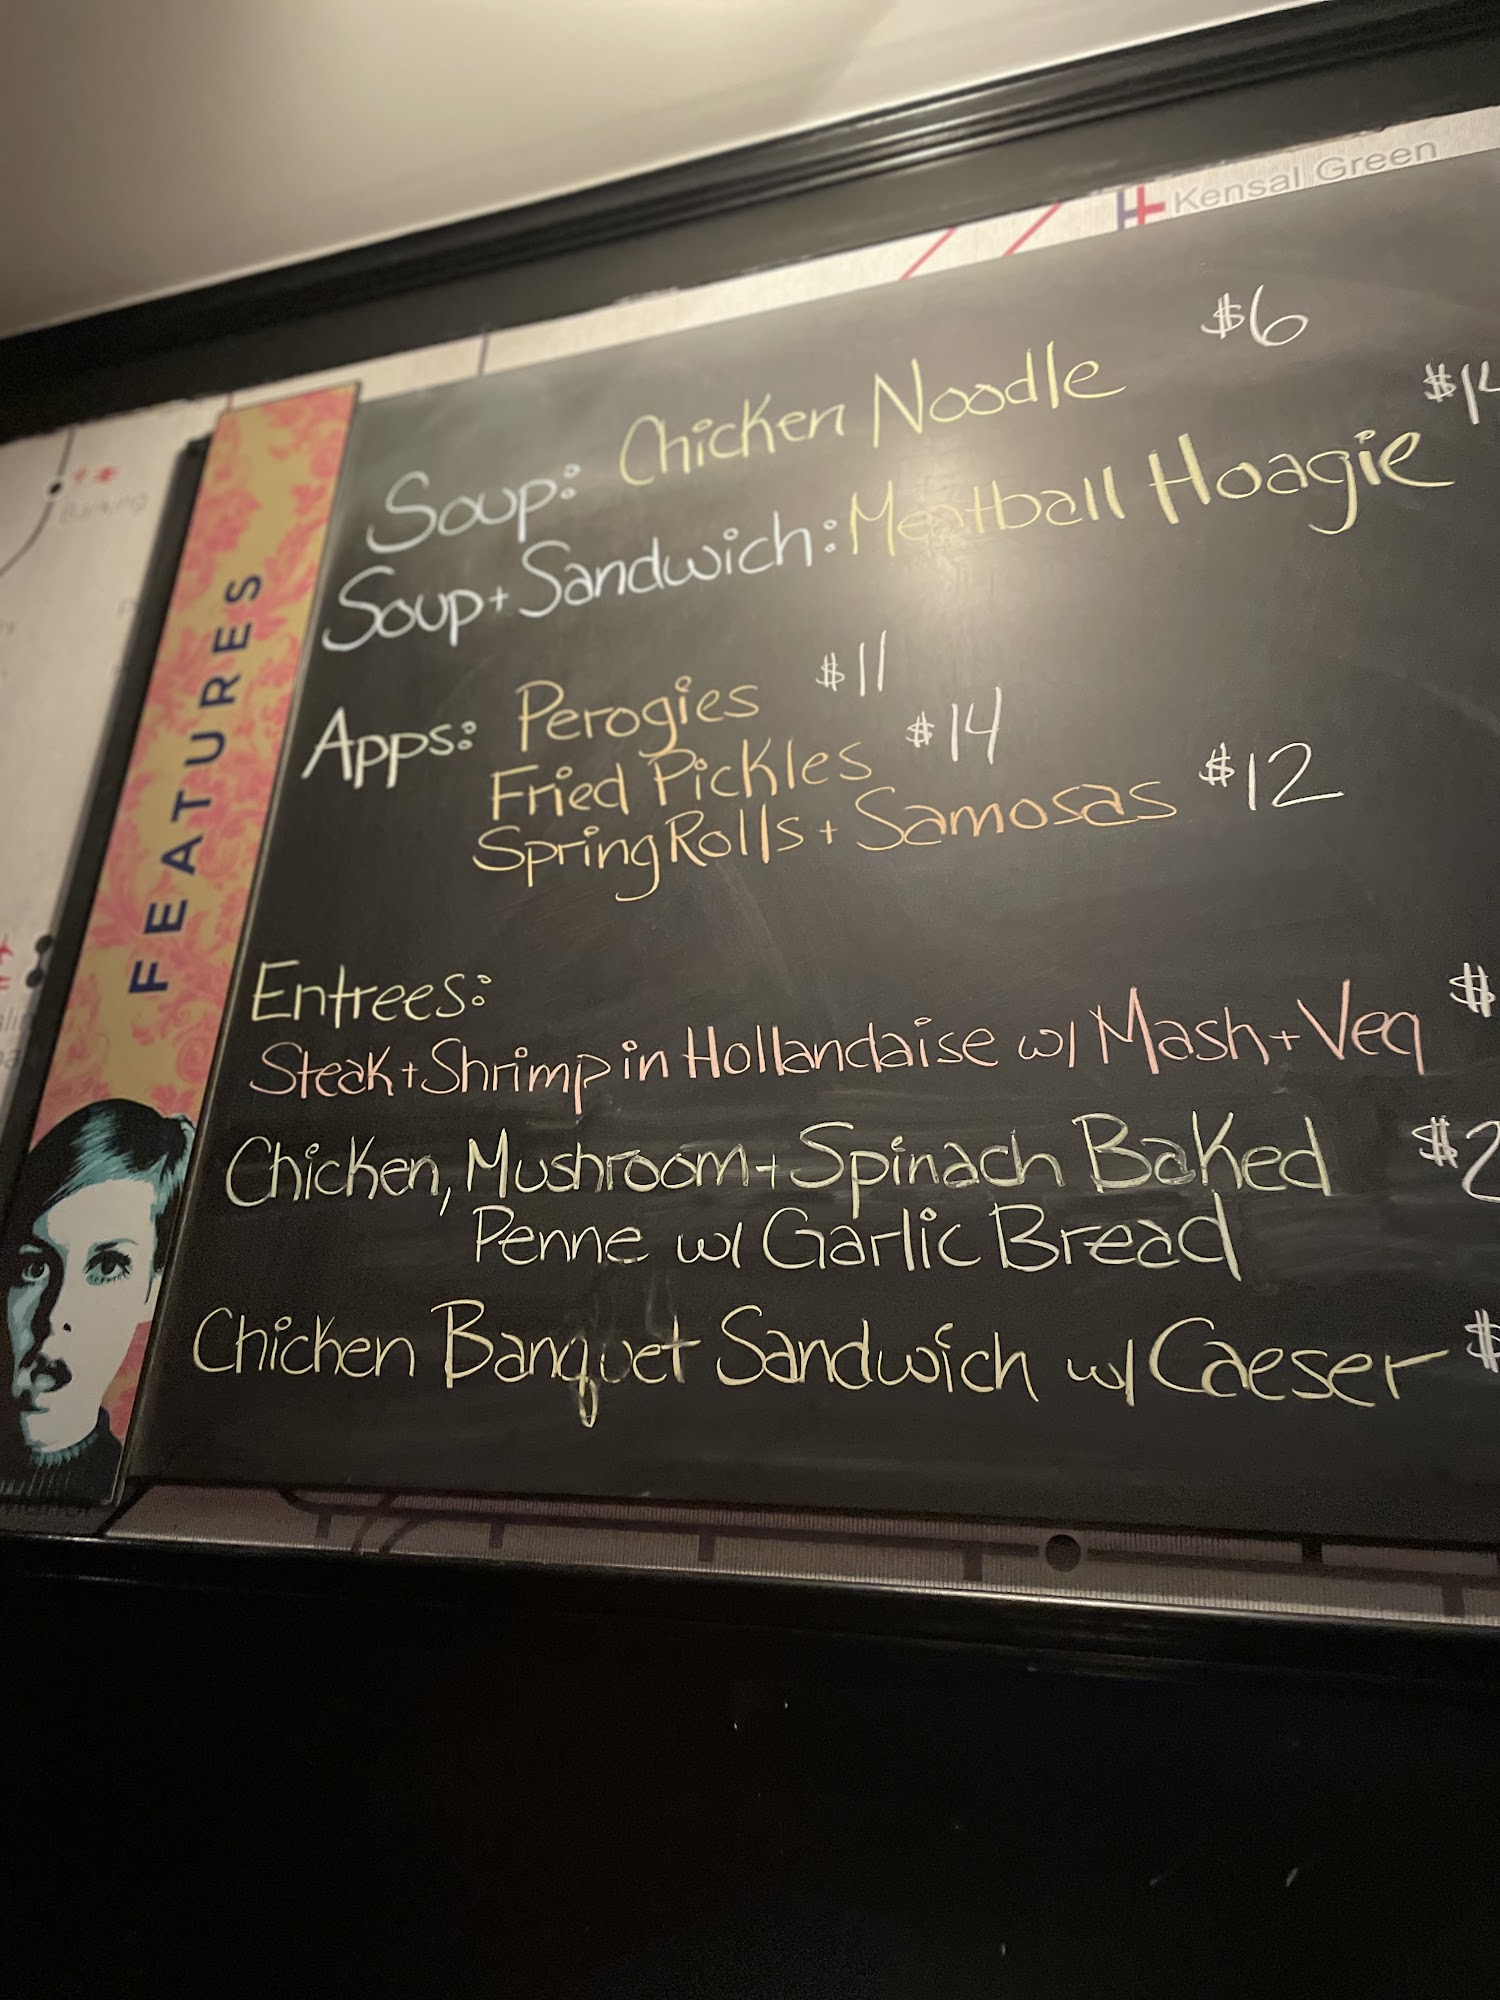 Kensal Green
Barking
FEATURES
Soup: Chicken Noodle $6
Soup + Sandwich: Meatball Hoagie $14
Apps: Perogies $11
Fried Pickles $14
Spring Rolls + Samosas $12
Entrees:
Steak + Shrimp in Hollandaise w/ Mash + Veg $
Chicken, Mushroom + Spinach Baked $2
Penne w/ Garlic Bread
Chicken Banquet Sandwich w/ Caeser $